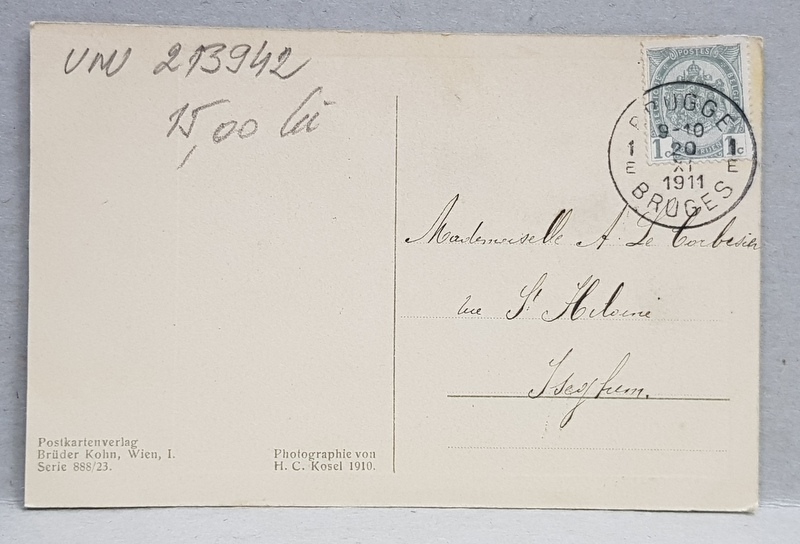 VMV 213942
15,00
POSTES
1c 1c
BRUGGE
9-10
1 20 1
E XI E
1911
BRUGES
Mademoiselle A. Le Corbesier
rue St Hiloine
Iseghem.
Postkartenverlag
Brüder Kohn, Wien, I.
Serie 888/23.
Photographie von
H. C. Kosel 1910.